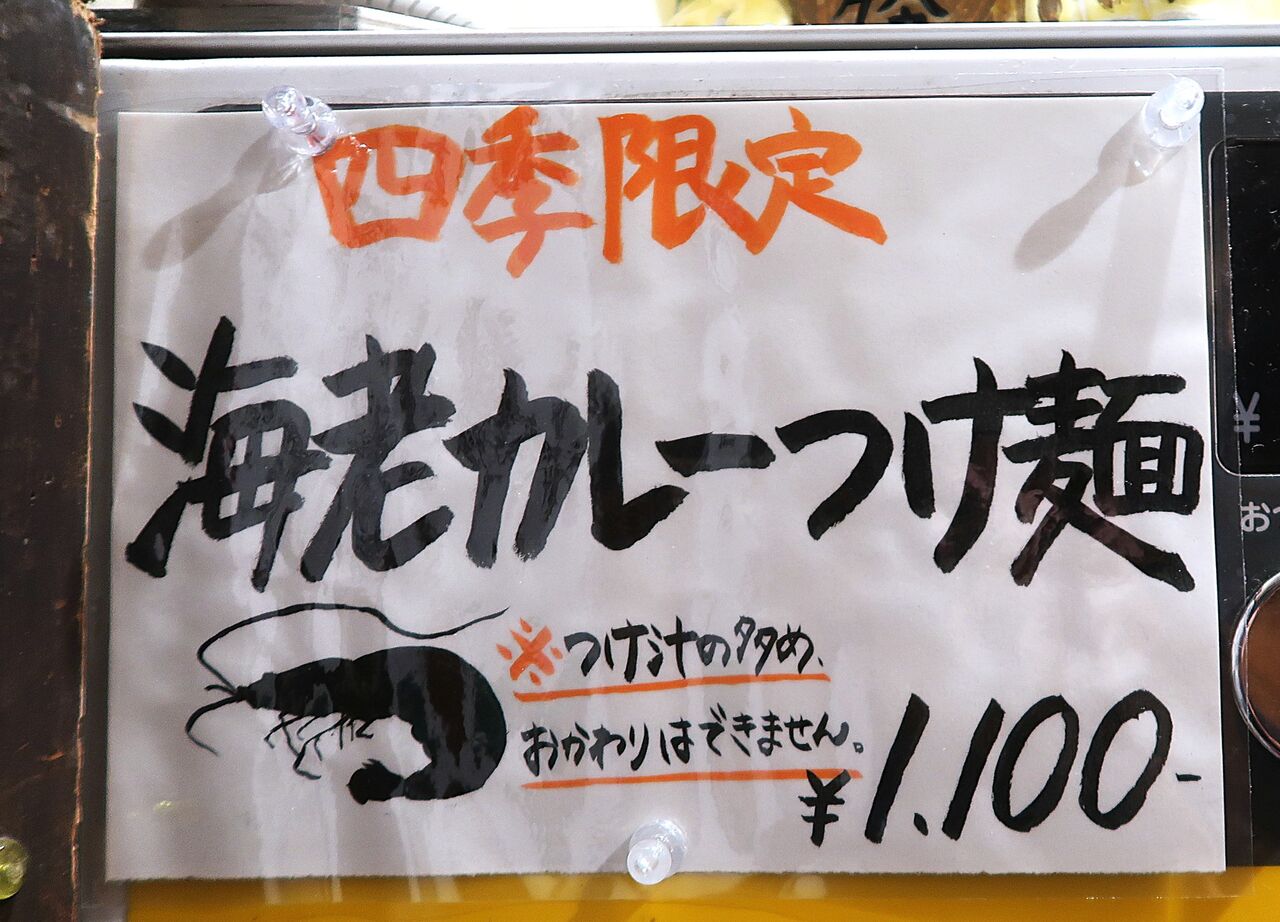 四季限定
海老カレーつけ麺
※つけ汁の多め、
おかわりはできません。
¥1,100-
¥
おつ